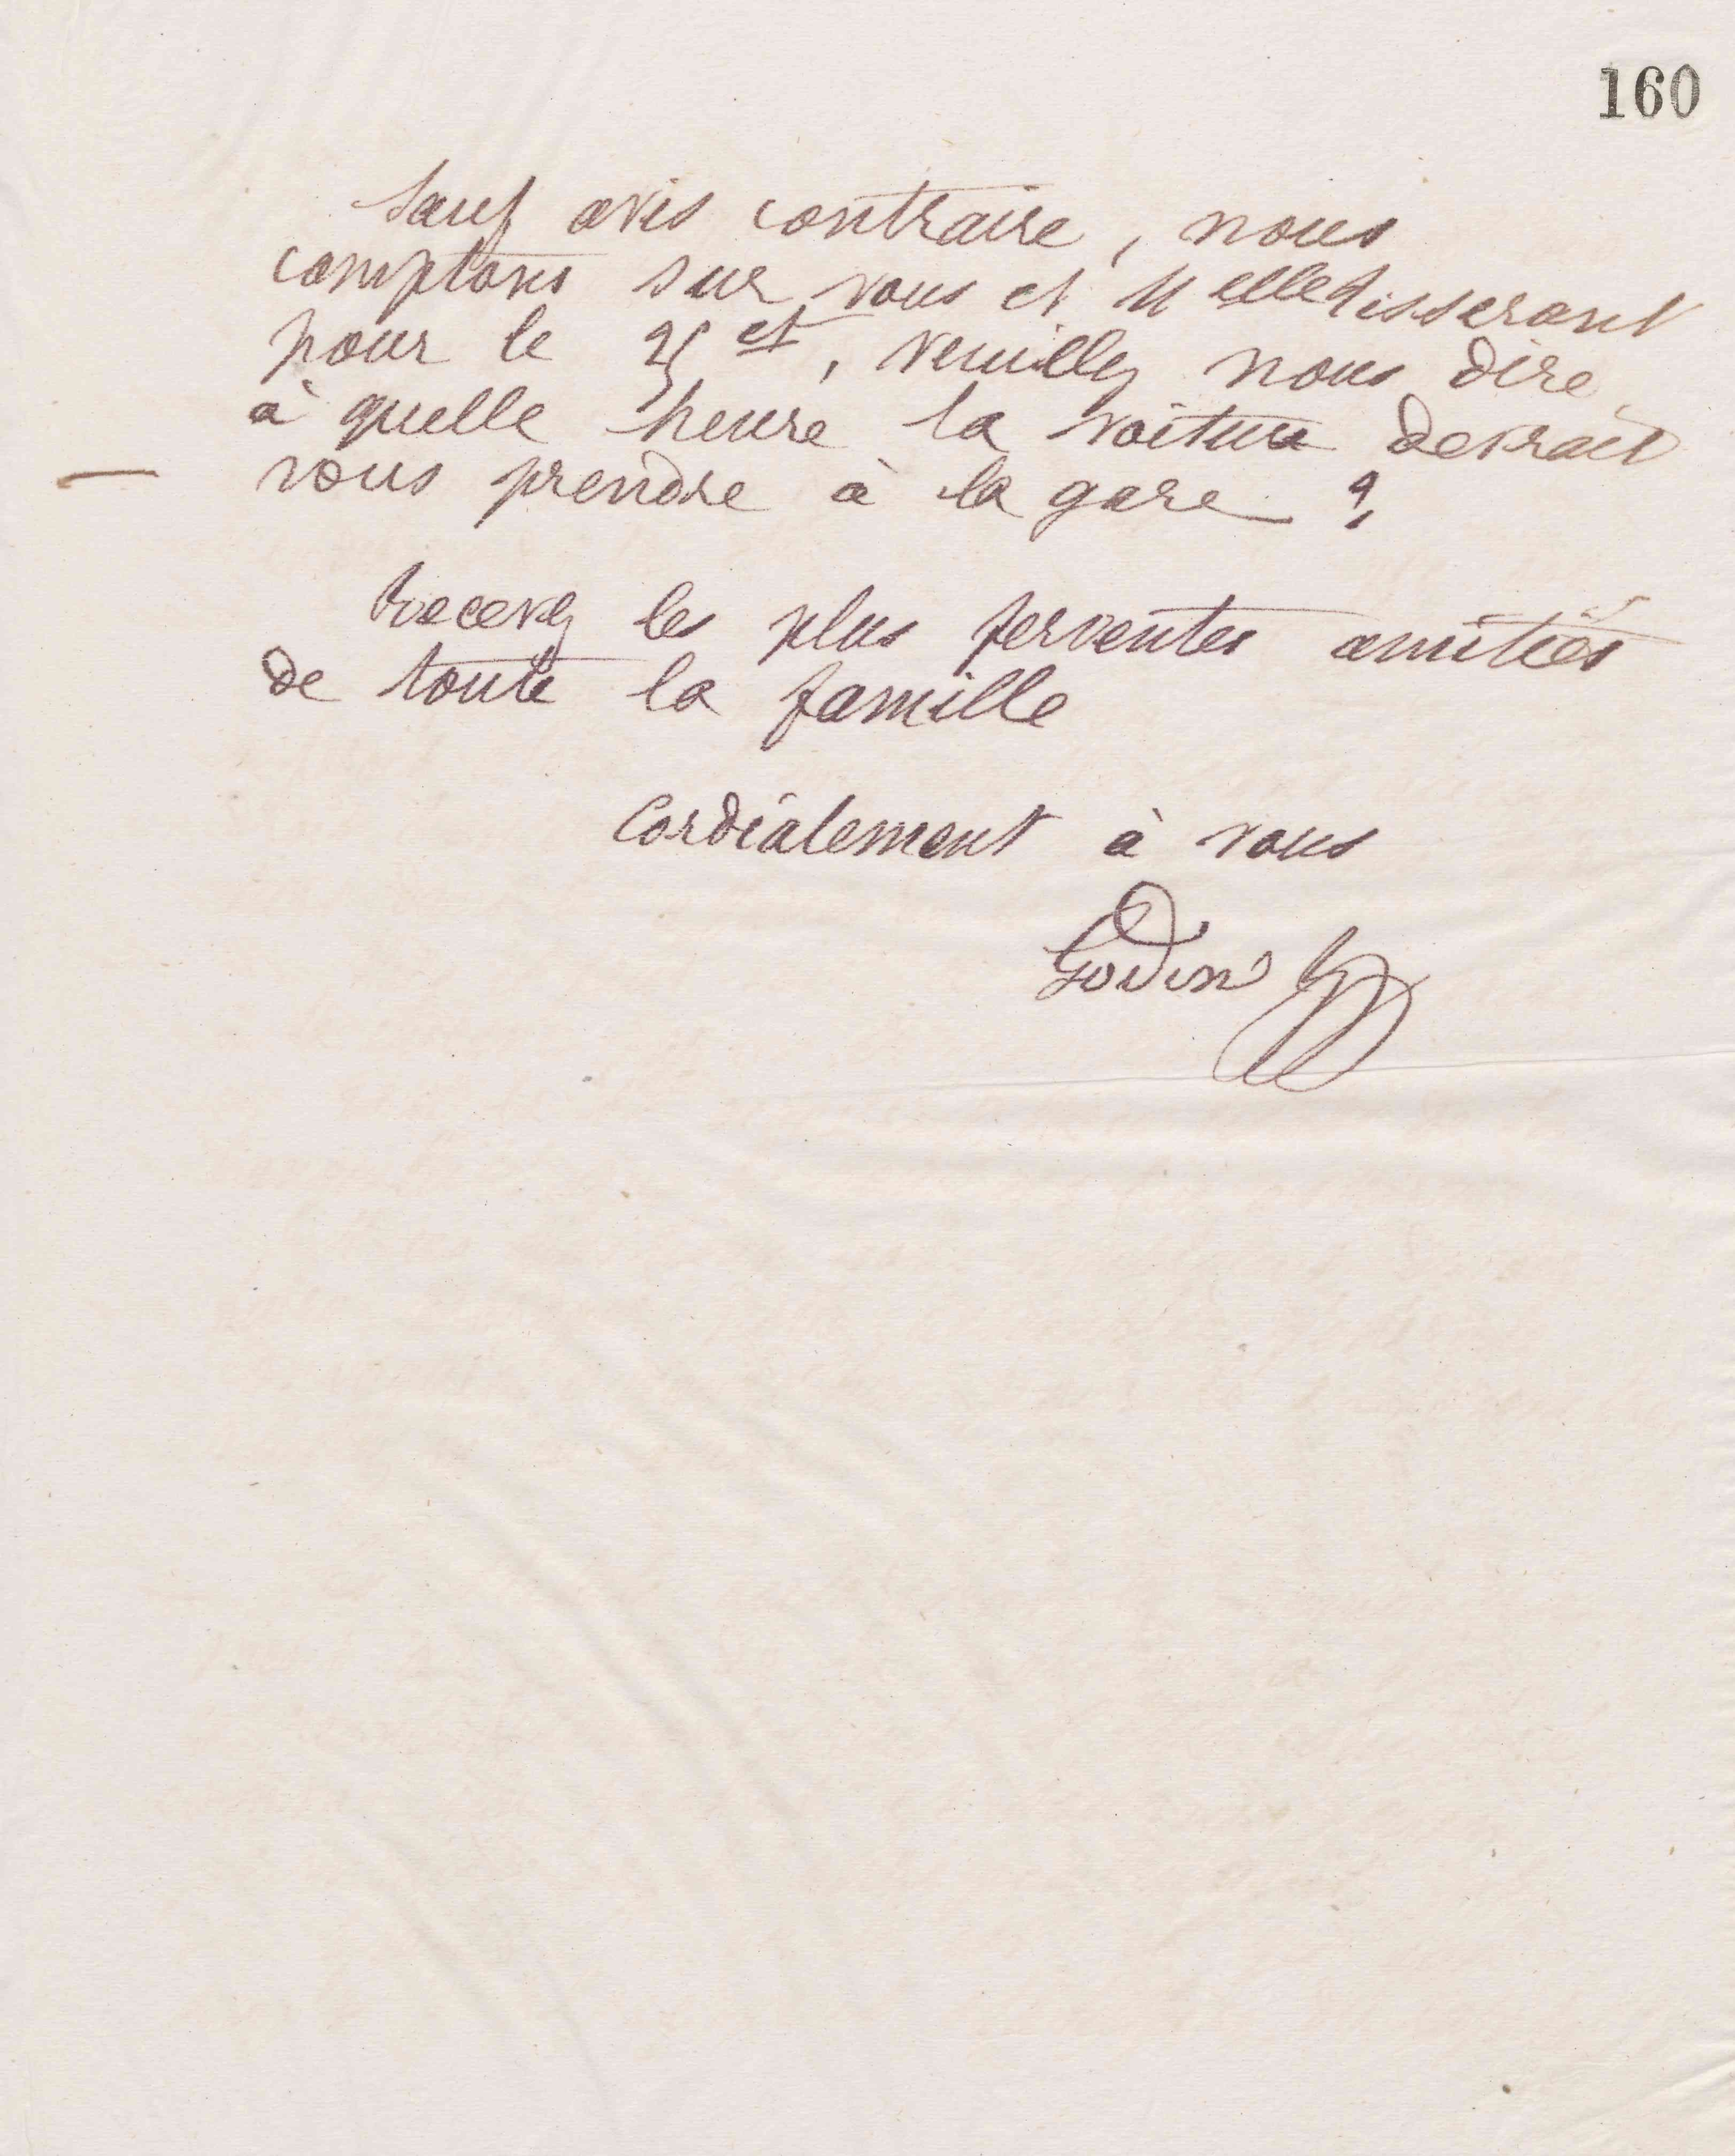 160
Sauf avis contraire, nous
comptons sur vous et Melle Tisserant
pour le 25 ct, veuillez nous dire
à quelle heure la voiture devrait
vous prendre à la gare ?
Recevez les plus ferventes amitiés
de toute la famille
Cordialement à vous
Godin